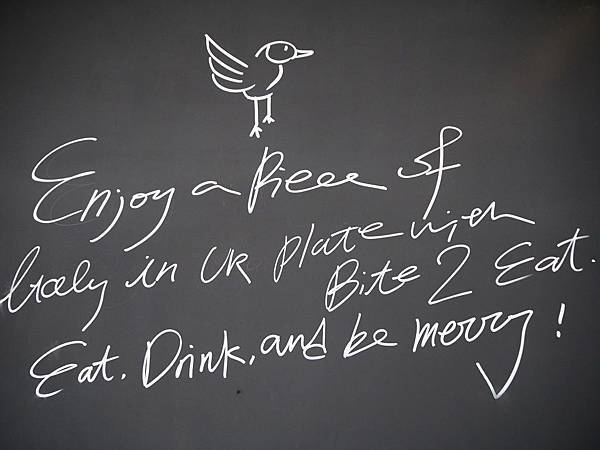 Enjoy a Piece of
Italy in UR Plate with
Bite 2 Eat.
Eat. Drink, and be merry!